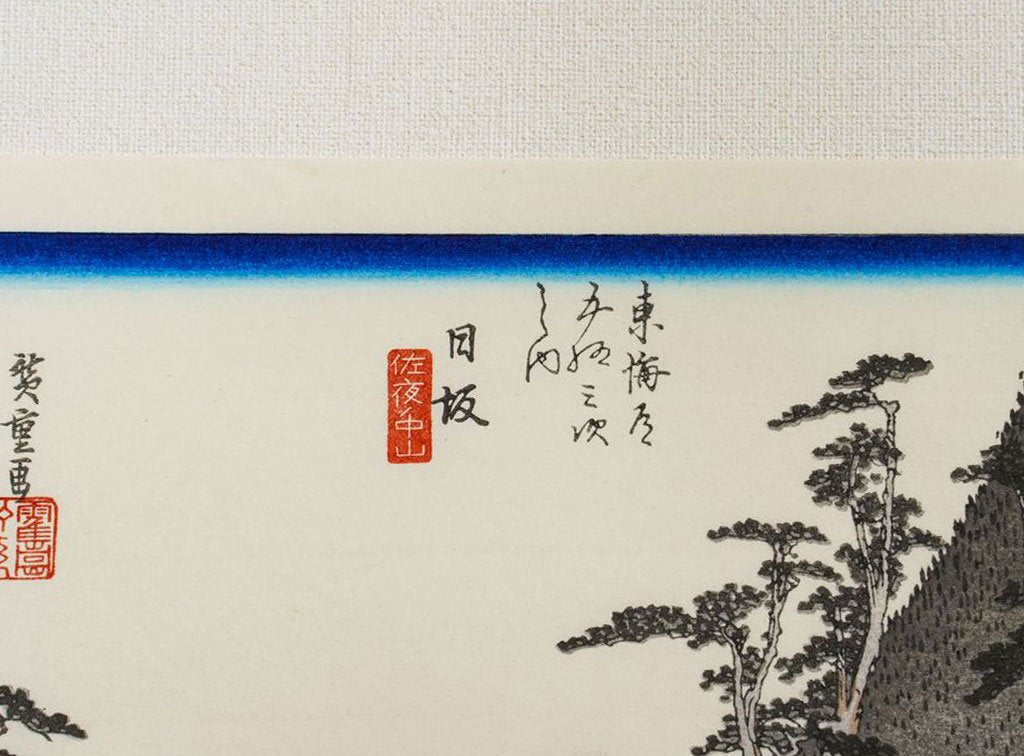 東海道
五拾三次
之内
日坂
佐夜ノ中山
廣重画